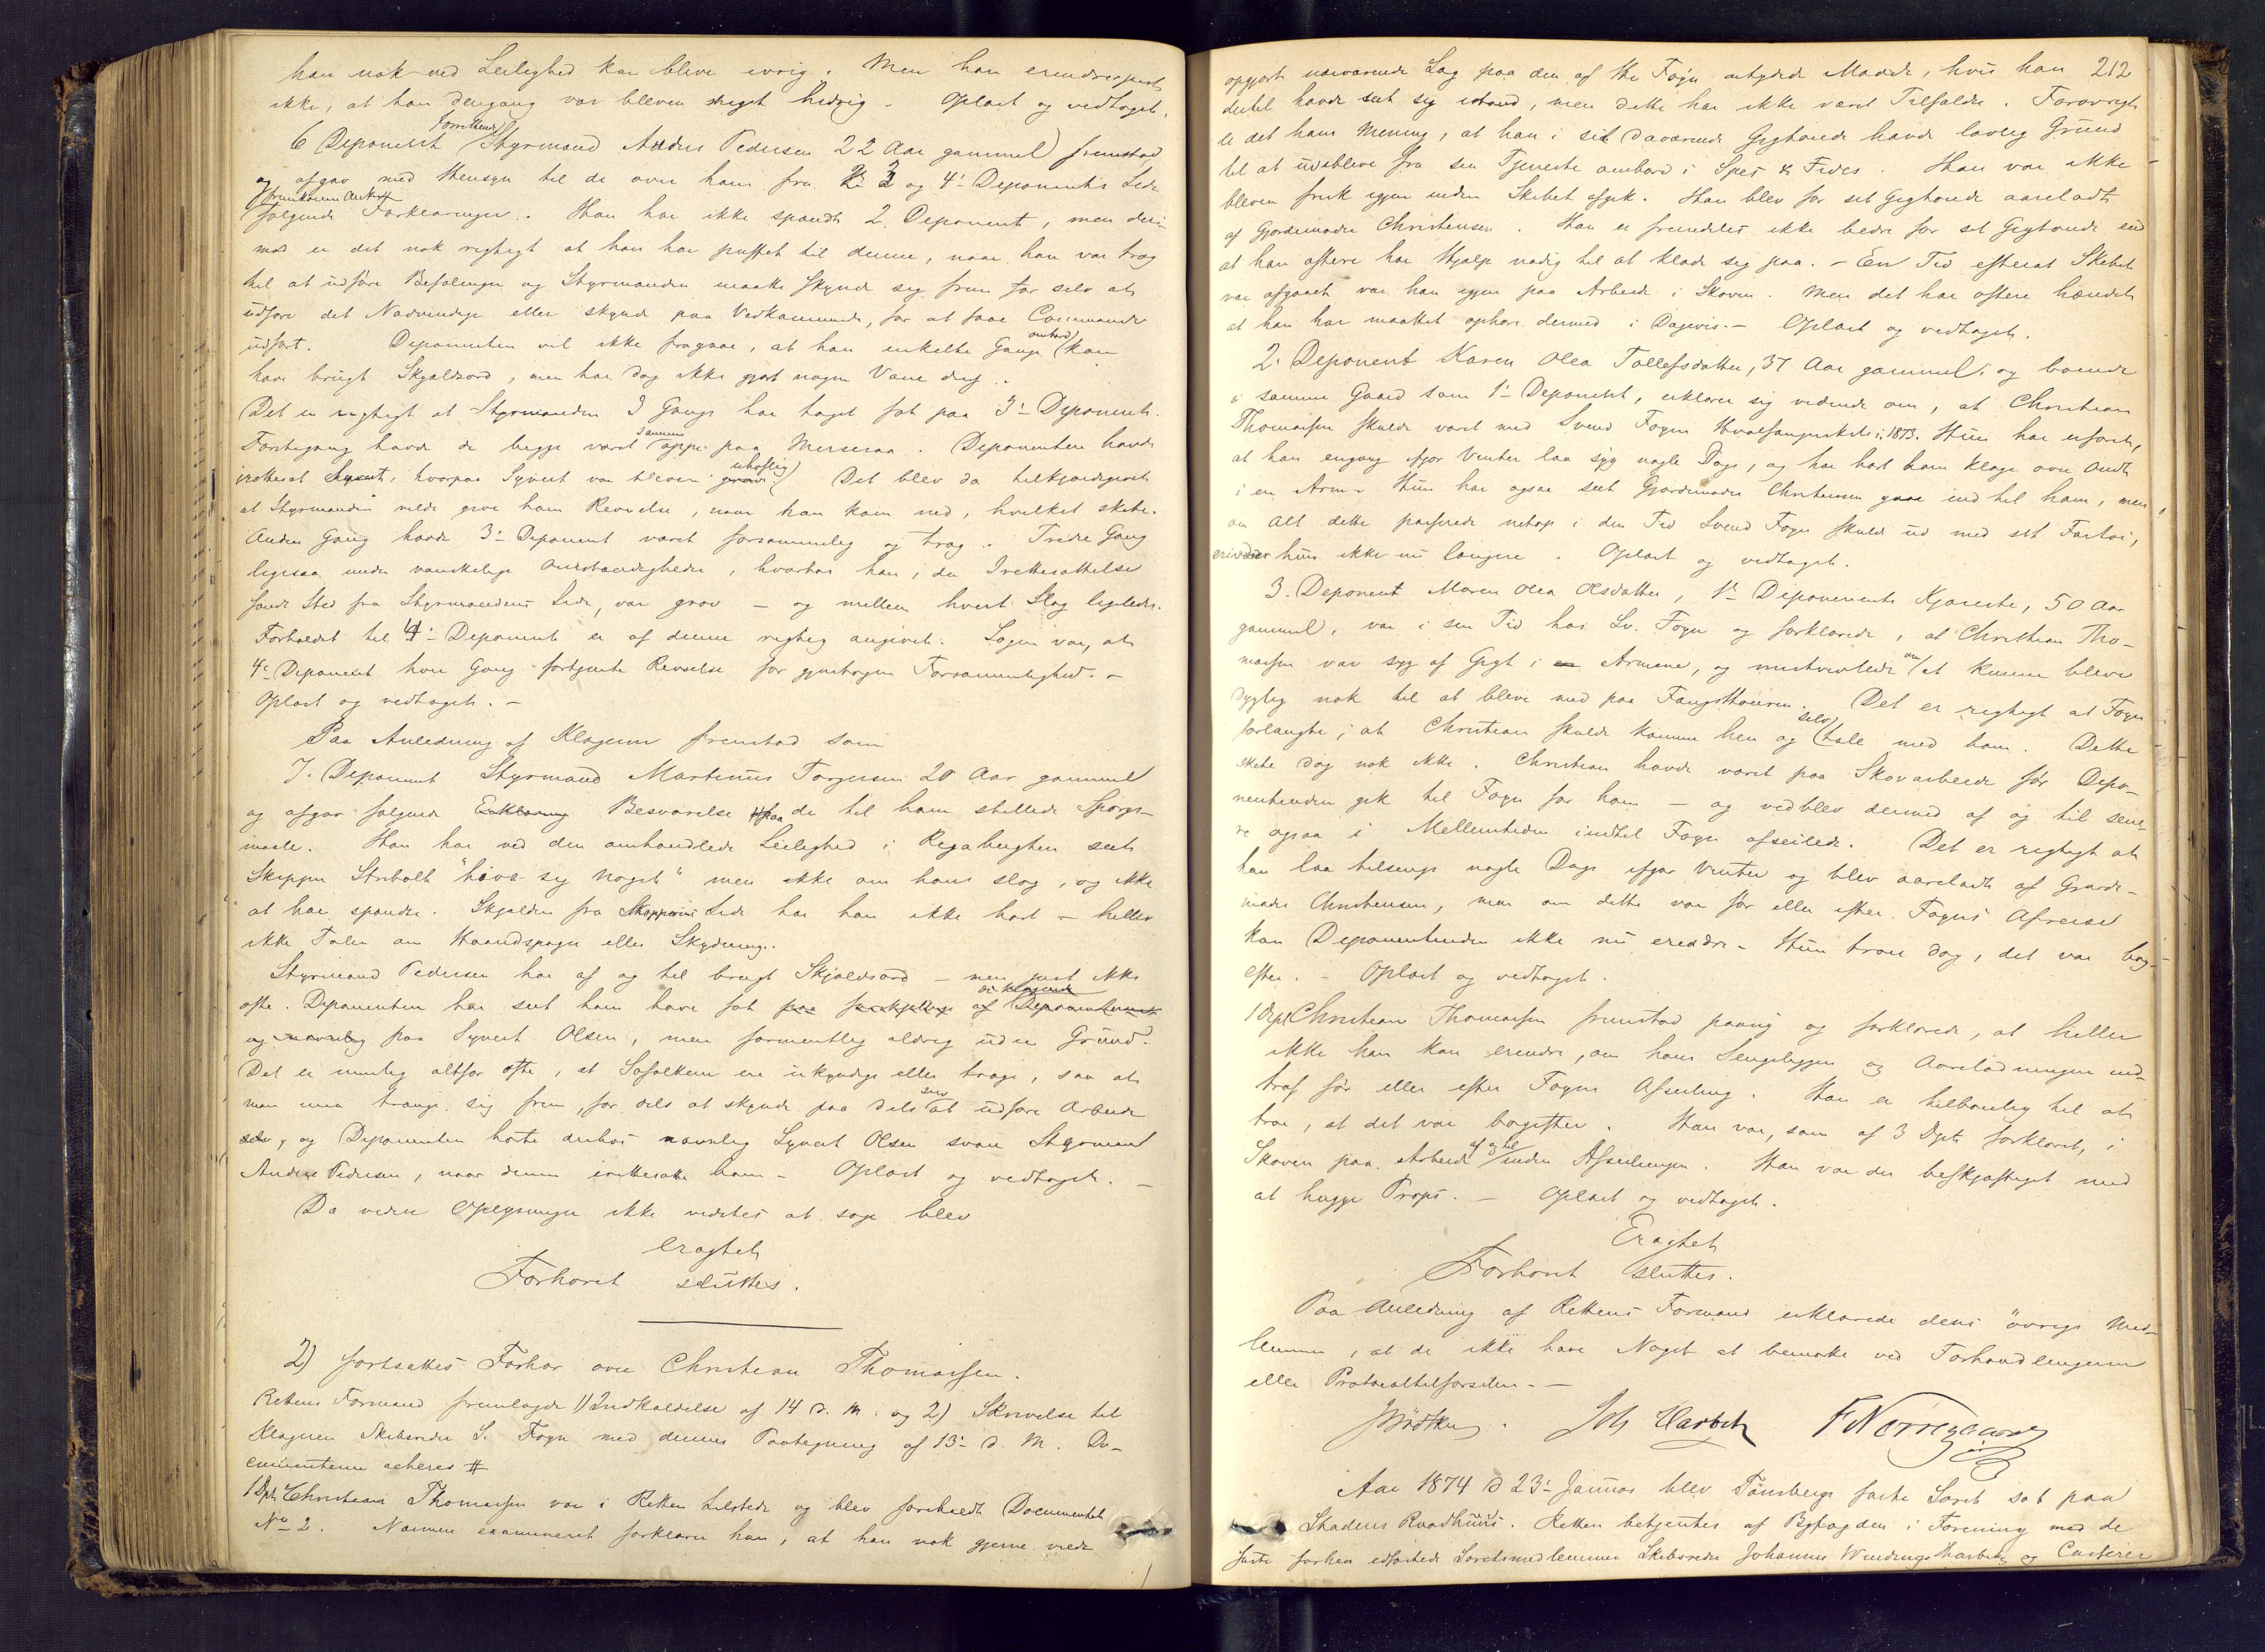 han nok ved Leilighed kan blive ivrig. Men han erindrer just
ikke, at han dengang var bleven meget hidsig - Oplæst og vedtaget.
6 Deponent (Forrettende) Styrmand Anders Pedersen 22 Aar gammel fremstod
og afgav med Hensyn til de over ham fra 2, 3 og 4' Deponents Side
fremkomne Anker følgende Forklaringer. Han har ikke spændt 2 Deponent, men deri-
mod er det nok rigtigt at han har puffet til denne, naar han var træg
til at udføre Befalinger og Styrmanden maatte skynde sig frem for selv at
udføre det Nødvendige eller skynde paa Vedkommende, for at faae Commando
udført. Deponenten vil ikke fragaae, at han enkelte Gange (ombord) kan
have brugt Skjældsord, men har dog ikke gjort nogen Vane deraf.
Det er rigtigt at Styrmanden 3 Gange har taget fat paa 3' Deponent.
Førstegang havde de begge været sammen oppe paa Merseraa. Deponenten havde
irettesat Syvert, hvorpaa Syvert var bleven grov (uhøflig) Det blev da tilkjendegivet
at Styrmanden vilde give ham Revselse, naar han kom ned, hvilket skete.
Anden Gang havde 3' Deponent været forsømmelig og træg. Tredie Gang
ligesaa under vanskelige Omstændigheder, hvorhos han, da Irettesættelse
fandt Sted fra Styrmandens Side, var grov - og mellem hvert Slag ligeledes.
Forholdet til 4' Deponent er af denne rigtig angivet. Sagen var, at
4' Deponent hver Gang fortjente Revselse for gjentagen Forsømmelighed. -
Oplæst og vedtaget. -
Paa Anledning af Klagerne fremstod som
7. Deponent Styrmand Martinus Torgersen 20 Aar gammel
og afgav følgende Erklæring Besvarelse paa de til ham stillede Spørgs-
maale. Han har ved den omhandlede Leilighed i Rigabugten seet
Skipper Stribolt "hive sig noget" men ikke om hans slog, og ikke
at han spændte. Skjælden fra Skipperens Side har han ikke hørt - heller
ikke Talen om Haandspager eller Skydning.
Styrmand Pedersen har af og til brugt Skjældsord - men just ikke
ofte. Deponenten har seet ham have fat paa forskjellige af de klagende Deponenterne
og navnlig paa Syvert Olsen, men formentlig aldrig uden Grund.
Det er nemlig altfor ofte, at Søfolkene ere ukyndige eller træge, saa at
man maa trænge sig frem, for dels at skynde paa dels at udføre Arbeide
selv, og Deponenten hørte derhos navnlig Syvert Olsen svare Styrmand
Anders Pedersen, naar denne irettesatte ham - Oplæst og vedtaget. -
Da videre Oplysninger ikke vidstes at søge blev
eragtet
Forhøret sluttes.
2) fortsattes Forhør over Christian Thomassen.
Rettens Formand fremlagde 1) Indkaldelse af 14 d. M. og 2) Skrivelse til
Klageren Skibsreder S. Foyn med dennes Paategning af 13' d. M. Do-
cumenterne acteres #
1 Dpt Christian Thomassen var i Retten tilstede og blev foreholdt Documentet
No 2. Nærmere examineret forklarer han, at han nok gjerne vilde
212
opgjort nærværende Sag paa den af Hr Foyn antydede Maade, hvis han
dertil havde seet sig istand, men dette har ikke været Tilfældet. Forøvrigt
er det hans Mening, at han i sit daværende Gigtonde havde lovlig Grund
til at udeblive fra sin Tjeneste ombord i Spes & Fides. Han var ikke
bleven frisk igjen inden Skibet afgik. Han blev for sit Gigtonde aareladt
af Gjordemoder Christensen. Han er fremdeles ikke bedre for sit Gigtonde end
at han oftere har Hjælp nødig til at klæde sig paa. - En Tid efterat Skibet
var afgaaet var han igjen paa Arbeide i Skoven. Men det har oftere hændet
at han har maattet ophøre dermed i Dagevis. - Oplæst og vedtaget.
2. Deponent Karen Olea Tollefsdatter, 37 Aar gammel. og boende
i samme Gaard som 1' Deponent, erklærer sig vidende om, at Christian
Thomassen skulde været med Svend Foyns Hvalfangerskib i 1873. Hun har erfaret,
at han engang ifjor Vinter laa syg nogle Dage, og har hørt ham klage over Ondt
i en Arm - Hun har ogsaa seet Gjordemoder Christensen gaae ind til ham, men
om alt dette passerede netop i den Tid Svend Foyn skulde ud med sit Fartøi,
erindrer hun ikke nu længere. Oplæst og vedtaget.
3. Deponent Maren Olea Olsdatter, 1' Deponents Kjæreste, 50 Aar
gammel, var i sin Tid hos Sv. Foyn og forklarede, at Christian Tho-
massen var syg af Gigt i en Armene, og mistvivlede om at kunne blive
dygtig nok til at blive med paa Fangsttouren. Det er rigtigt at Foyn
forlangte, at Christian skulde komme hen og selv tale med ham. Dette
skete dog nok ikke. Christian havde været paa Skovarbeide før Depo-
nentinden gik til Foyn for ham - og vedblev dermed af og til sene-
re ogsaa i Mellemtiden indtil Foyn afseilede. Det er rigtigt at
han laa tilsengs nogle Dage ifjor Vinter og blev aareladt af Gjorde-
moder Christensen, men om dette var før eller efter Foyns Afreise
kan Deponentinden ikke nu erindre - Hun troer dog, det var bag-
efter. - Oplæst og vedtaget.
1 Dpt Christian Thomassen fremstod paany og forklarede, at heller
ikke han kan erindre, om hans Sengeliggen og Aareladningen ind-
traf før eller efter Foyns Afseiling. Han er tilbøielig til at
troe, at det var bagefter. Han var, som af 3 Dpt forklaret, i
Skoven paa Arbeide af og til inden Afseilingen. Han var der beskjæftiget med
at hugge Props. - Oplæst og vedtaget.
Eragtet
Forhøret sluttes.
Paa Anledning af Rettens Formand erklærede dens øvrige Med-
lemmer, at de ikke have Noget at bemærke ved Forhandlingerne
eller Protocoltilførselen. -
Joh Harbitz F Nørregaard
Aar 1874 d 23' Januar blev Tønsbergs faste Søret sat paa
Stadens Raadhuus. Retten betjentes af Byfogden i Forening med de
faste forhen edfæstede Søretsmedlemmer Skibsreder Johannes Wendings Harbitz og Casserer